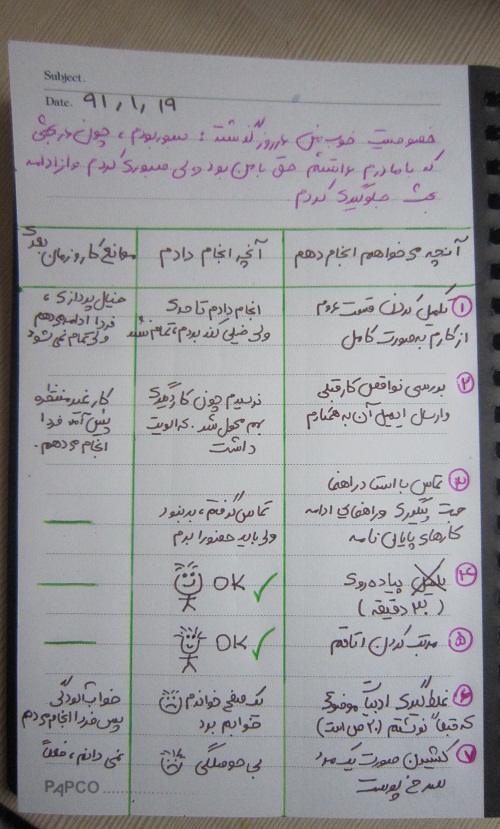 Subject.
Date. ۹۱/۱/۱۹
خصوصیت خوب من در روز گذشته : صبور بودم ، چون در بحثی
که با مادرم داشتم حق با من بود ولی صبوری کردم و از ادامه
بحث جلوگیری کردم
آنچه می خواهم انجام دهم
آنچه انجام دادم
موانع کار و زمان بعدی
۱ تکمیل کردن قسمت دوم
از کارم به صورت کامل
انجام دادم تا حدی
ولی خیلی کند بودم تمام نشد
خیال پردازی ،
فردا ادامه می دهم
ولی تمام نمی شود
۲ بررسی نواقص کار قبلی
و ارسال ایمیل آن به همکارم
نرسیدم چون کار دیگری
بهم محول شد . که الویت
داشت
کار غیر منتظره
پیش آمد فردا
انجام می دهم .
۳ تماس با استاد راهنما
جهت پیگیری و راهنمایی ادامه
کارهای پایان نامه
تماس گرفتم ، بد نبود
ولی باید حضورا برم
۴ پیاده روی
(۳۰ دقیقه)
OK
۵ مرتب کردن اتاقم
OK
۶ غلط گیری ادبیات موضوعی
که قبلاً نوشتم (۲۰ ص است)
یک صفحه خواندم
خوابم برد
خواب آلودگی
پس فردا انجام می دم
۷ کشیدن صورت یک مرد
سرخ پوست
بی حوصلگی
نمی دانم ، فعلاً
PAPCO